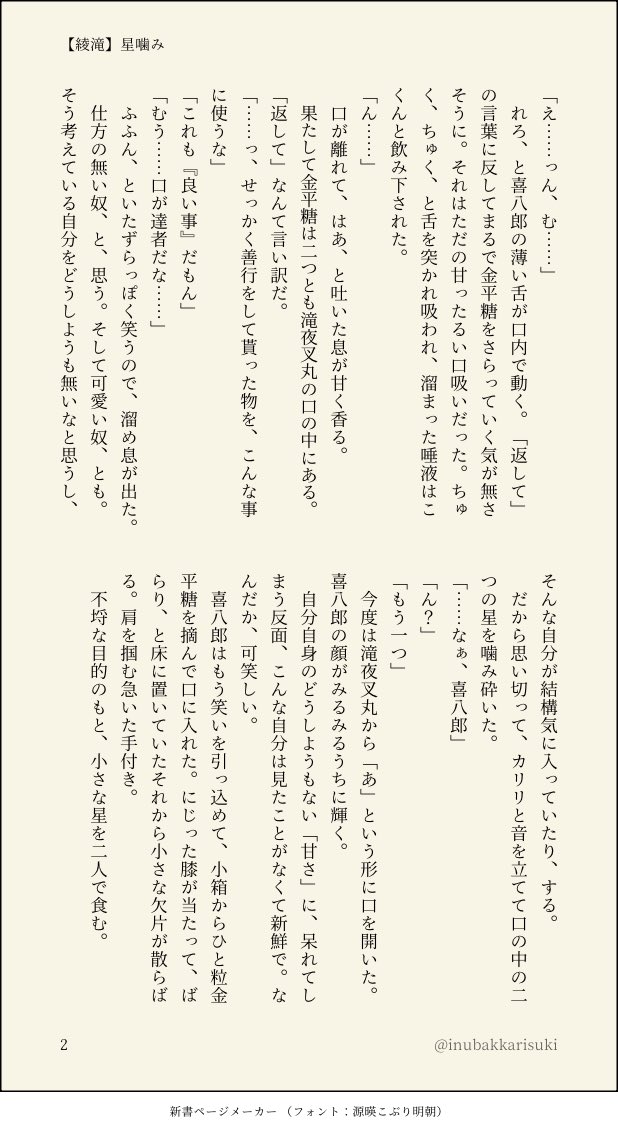 【綾滝】星噛み
「え……っん、む……」
　れろ、と喜八郎の薄い舌が口内で動く。「返して」
の言葉に反してまるで金平糖をさらっていく気が無さ
そうに。それはただの甘ったるい口吸いだった。ちゅ
く、ちゅく、と舌を突かれ吸われ、溜まった唾液はこ
くんと飲み下された。
「ん……」
　口が離れて、はあ、と吐いた息が甘く香る。
　果たして金平糖は二つとも滝夜叉丸の口の中にある。
「返して」なんて言い訳だ。
「……っ、せっかく善行をして貰った物を、こんな事
に使うな」
「これも『良い事』だもん」
「むう……口が達者だな……」
　ふふん、といたずらっぽく笑うので、溜め息が出た。
　仕方の無い奴、と、思う。そして可愛い奴、とも。
そう考えている自分をどうしようも無いなと思うし、
そんな自分が結構気に入っていたり、する。
　だから思い切って、カリリと音を立てて口の中の二
つの星を噛み砕いた。
「……なぁ、喜八郎」
「ん？」
「もう一つ」
　今度は滝夜叉丸から「あ」という形に口を開いた。
喜八郎の顔がみるみるうちに輝く。
　自分自身のどうしようもない「甘さ」に、呆れてし
まう反面、こんな自分は見たことがなくて新鮮で。な
んだか、可笑しい。
　喜八郎はもう笑いを引っ込めて、小箱からひと粒金
平糖を摘んで口に入れた。にじった膝が当たって、ば
らり、と床に置いていたそれから小さな欠片が散らば
る。肩を掴む急いた手付き。
　不埒な目的のもと、小さな星を二人で食む。
2
@inubakkarisuki
新書ページメーカー（フォント：源暎こぶり明朝）